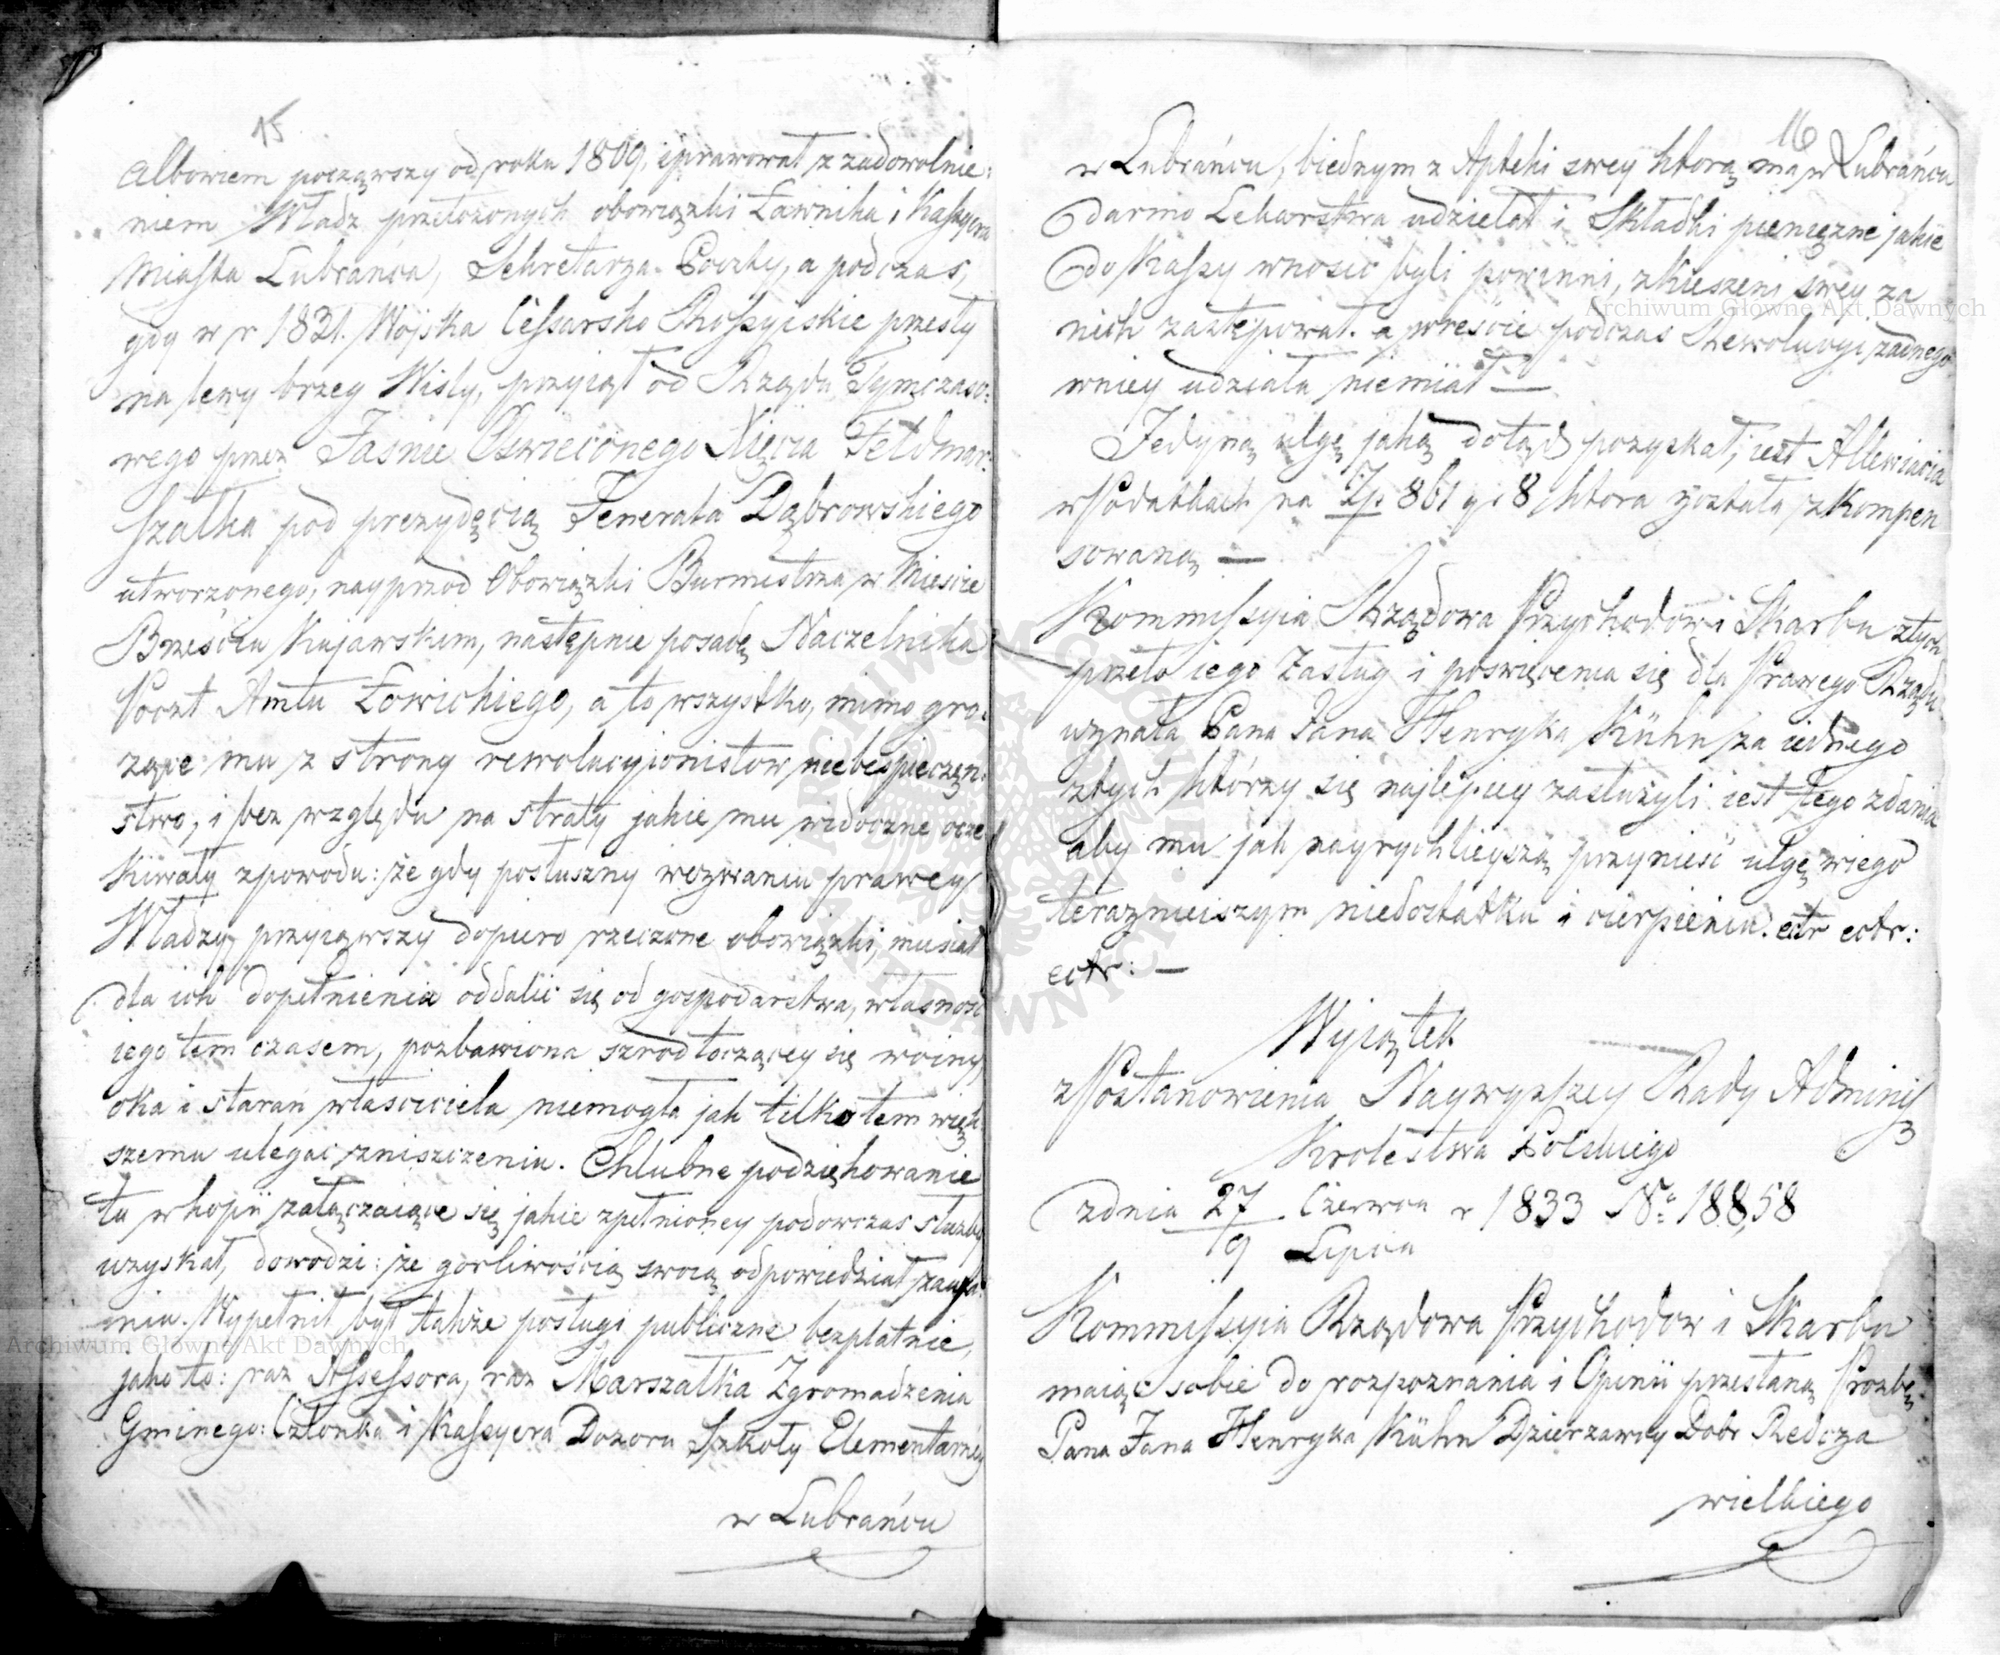 15
Albowiem począwszy od roku 1809, sprawował z zadowolnie:
niem Władz przełożonych obowiązki Ławnika i Kassyera
Miasta Lubrańca, Sekretarza Poczty, a podczas,
gdy w r 1831. Wojska Cessarsko Rossyiskie przeszły
na lewy brzeg Wisły, przyiął od Rządu Tymczaso:
wego przez Jaśnie Oświeconego Xięcia Feldmar:
szałka pod prezydęcią Jenerała Dąbrowskiego
utworzonego, nayprzod Obowiązki Burmistrza w Mieście
Brześciu Kujawskim, następnie posadę Naczelnika
Poczt Amtu Łowickiego, a to wszystko, mimo gro:
żące mu z strony rewolucyionistow niebespieczęn:
stwo, i bez względu na straty jakie mu widoczne ocze
kiwały zpowodu: że gdy posłuszny wezwaniu prawey
Władzy, przyiąwszy dopiero rzeczone obowiązki, musiał
dla ich dopełnienia oddalić się od gospodarstwa, własność
iego tem czasem, pozbawiona szrod toczącey się woiny
oka i starań właściciela niemogła jak tilko tem więk
szemu ulegać zniszczeniu. Chlubne podziękowanie
tu w kopii załączaiące się jakie zpełnioney podowczas służby
uzyskał, dowodzi: że gorliwością swoią odpowiedział zaufa:
niu. Wypełnił był także posługi publiczne bezpłatnie,
jako to: raz Assessora, raz Marszałka Zgromadzenia
Gminego: Członka i Kassyera Dozoru Szkoły Elementarney
w Lubrańcu
16
w Lubrańcu, biednym z Apteki swey ktorą ma w Lubrańcu
darmo Lekarstwa udzielał i Składki pieniężne jakie
do Kassy wnosić byli powinni, z kieszeni swey za
nich zastępował. a wreście podczas Rewolucyi żadnego
w niey udziału niemiał —
Jedyną ulgę jaką dotąd pozyskał, iest Allewiacia
w Podatkach na Złp 861 g: 8 ktora została zkompen
sowaną —
Kommissyia Rządowa Przychodow i Skarbu z tych
przeto iego zasług i poswięcenia się dla Prawego Rządu
uznała Pana Jana Henryka Kühn za iednego
z tych którzy się najlepiey zasłużyli iest tego zdania
aby mu jak nayrychleyszą przynieść ulgę w iego
teraznieiszym niedostatku i cierpieniu. ectr ectr:
ectr: —
Wyiątek
z Postanowienia Naywyższey Rady Adminis
Krolestwa Polskiego
z dnia 27 Czerwca r 1833 No 18858
9 Lipca
Kommissyia Rządowa Przychodow i Skarbu
maiąc sobie do rozpoznania i Opinii przesłaną Prozbę
Pana Jana Henryka Kühn Dzierzawcy Dobr Redcza
wielkiego
Archiwum Główne Akt Dawnych
Archiwum Główne Akt Dawnych
ARCHIWUM GŁÓWNE AKT DAWNYCH